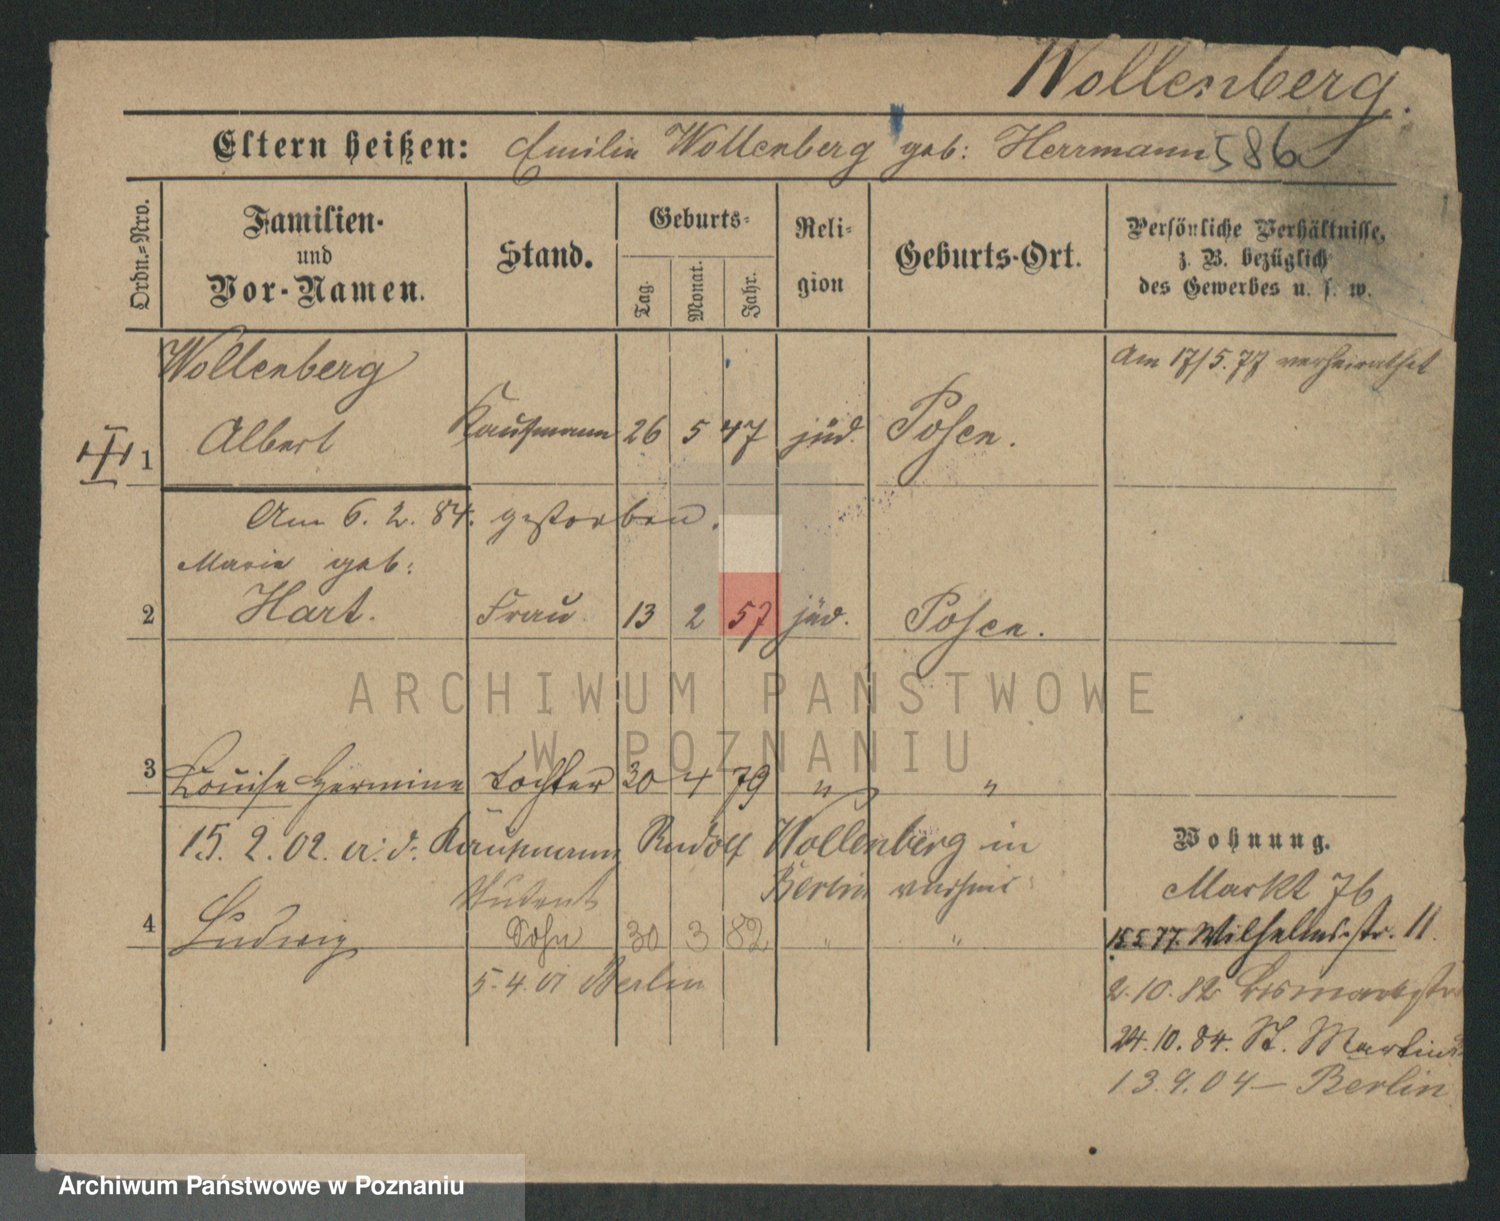 Wollenberg.
Eltern heißen: Emilie Wollenberg geb: Herrmann 586
Ordn.=Nro.
Familien-
und
Vor-Namen.
Stand.
Geburts=
Tag.
Monat.
Jahr.
Reli=
gion
Geburts-Ort.
Persönliche Verhältnisse,
z. B. bezüglich
des Gewerbes u. s. w.
Wollenberg
Am 17/5.77 verheirathet
1 Albert Kaufmann 26 5 47 jüd. Posen.
Am 6. 2. 84. gestorben.
Marie geb:
2 Hart. Frau 13 2 57 jüd. Posen.
ARCHIWUM PAŃSTWOWE
W POZNANIU
3 Louise Hermine Tochter 30 4 79 " "
15. 2. 02. a. d. Kaufmann Rudolf Wollenberg in
Berlin verheir
Student
4 Ludwig Sohn 30 3 82 " "
5.4.01 Berlin
Wohnung.
Markt 76
15.5.77. Wilhelmsstr. 11.
2.10.82 Bismarckstr
24.10.84. St. Martin
13.9.04 — Berlin
Archiwum Państwowe w Poznaniu